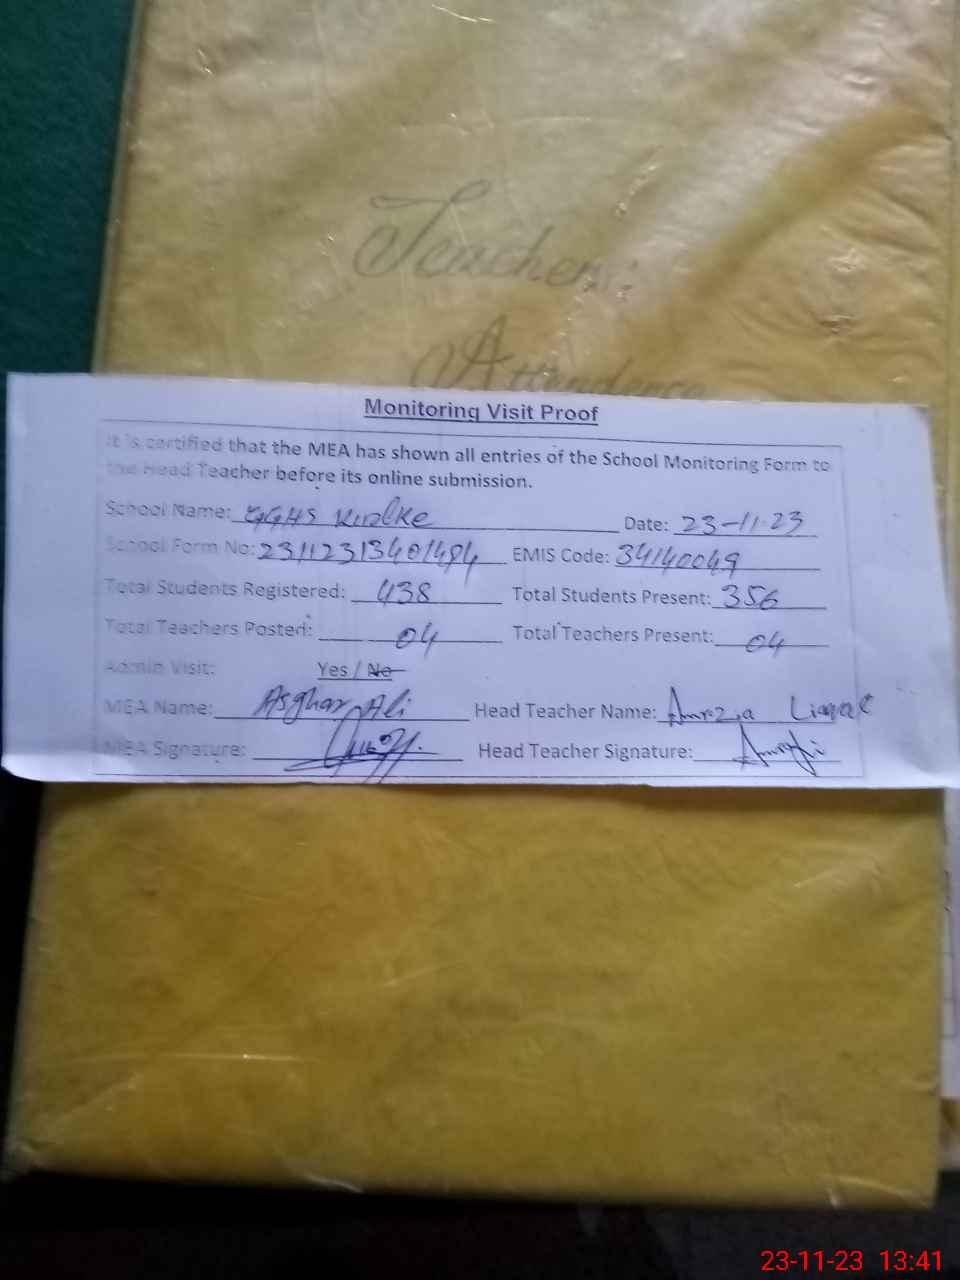 Teachers
Attendence
Monitoring Visit Proof
It is certified that the MEA has shown all entries of the School Monitoring Form to
the Head Teacher before its online submission.
School Name: GGHS Date: 23-11-23
School Form No: 23112313401494 EMIS Code: 34140049
Total Students Registered: 438 Total Students Present: 356
Total Teachers Posted: 04 Total Teachers Present: 04
Admin Visit: Yes / No
MEA Name: Asghar Ali Head Teacher Name:
MEA Signature: Head Teacher Signature:
23-11-23 13:41